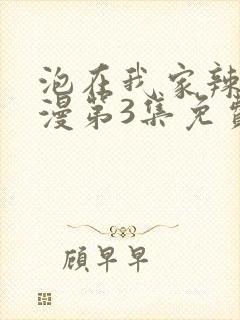 泡在我家辣
漫第3集免费
顾早早